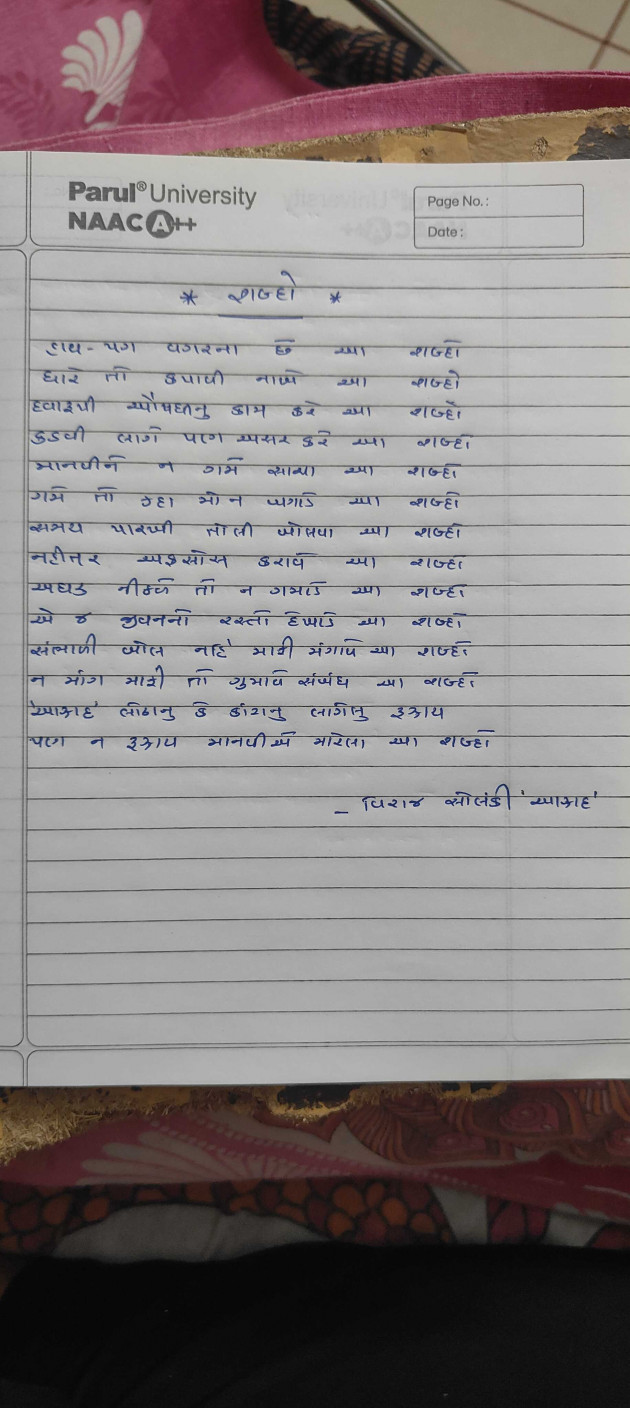 Parul® University
NAAC A++
Page No.:
Date:
* શબ્દો *
હાથ - પગ વગરના છે આ શબ્દો
ધારે તો કપાવી નાખે આ શબ્દો
દવારૂપી ઔષધીનુ કામ કરે આ શબ્દો
કડવી લાગે પણ અસર કરે આ શબ્દો
માનવીને ન ગમે સાચા આ શબ્દો
ગમે તો કહા મો ન બગાડે આ શબ્દો
સમય પારખી તોલી બોલવા આ શબ્દો
નહીતર અફસોસ કરાવે આ શબ્દો
અઘડ નીકળે તો ન ગમાડે આ શબ્દો
એ જ જીવનનો રસ્તો દેખાડે આ શબ્દો
સંભાળી બોલ નહિ માફી મંગાવે આ શબ્દો
ન માંગ માફી તો ગુમાવે સંબંધ આ શબ્દો
લોઢાનુ કે કાંટાનુ લાગેલુ રૂઝાય
પણ ન રૂઝાય માનવીએ મારેલા આ શબ્દો
- વિરાજ સોલંકી